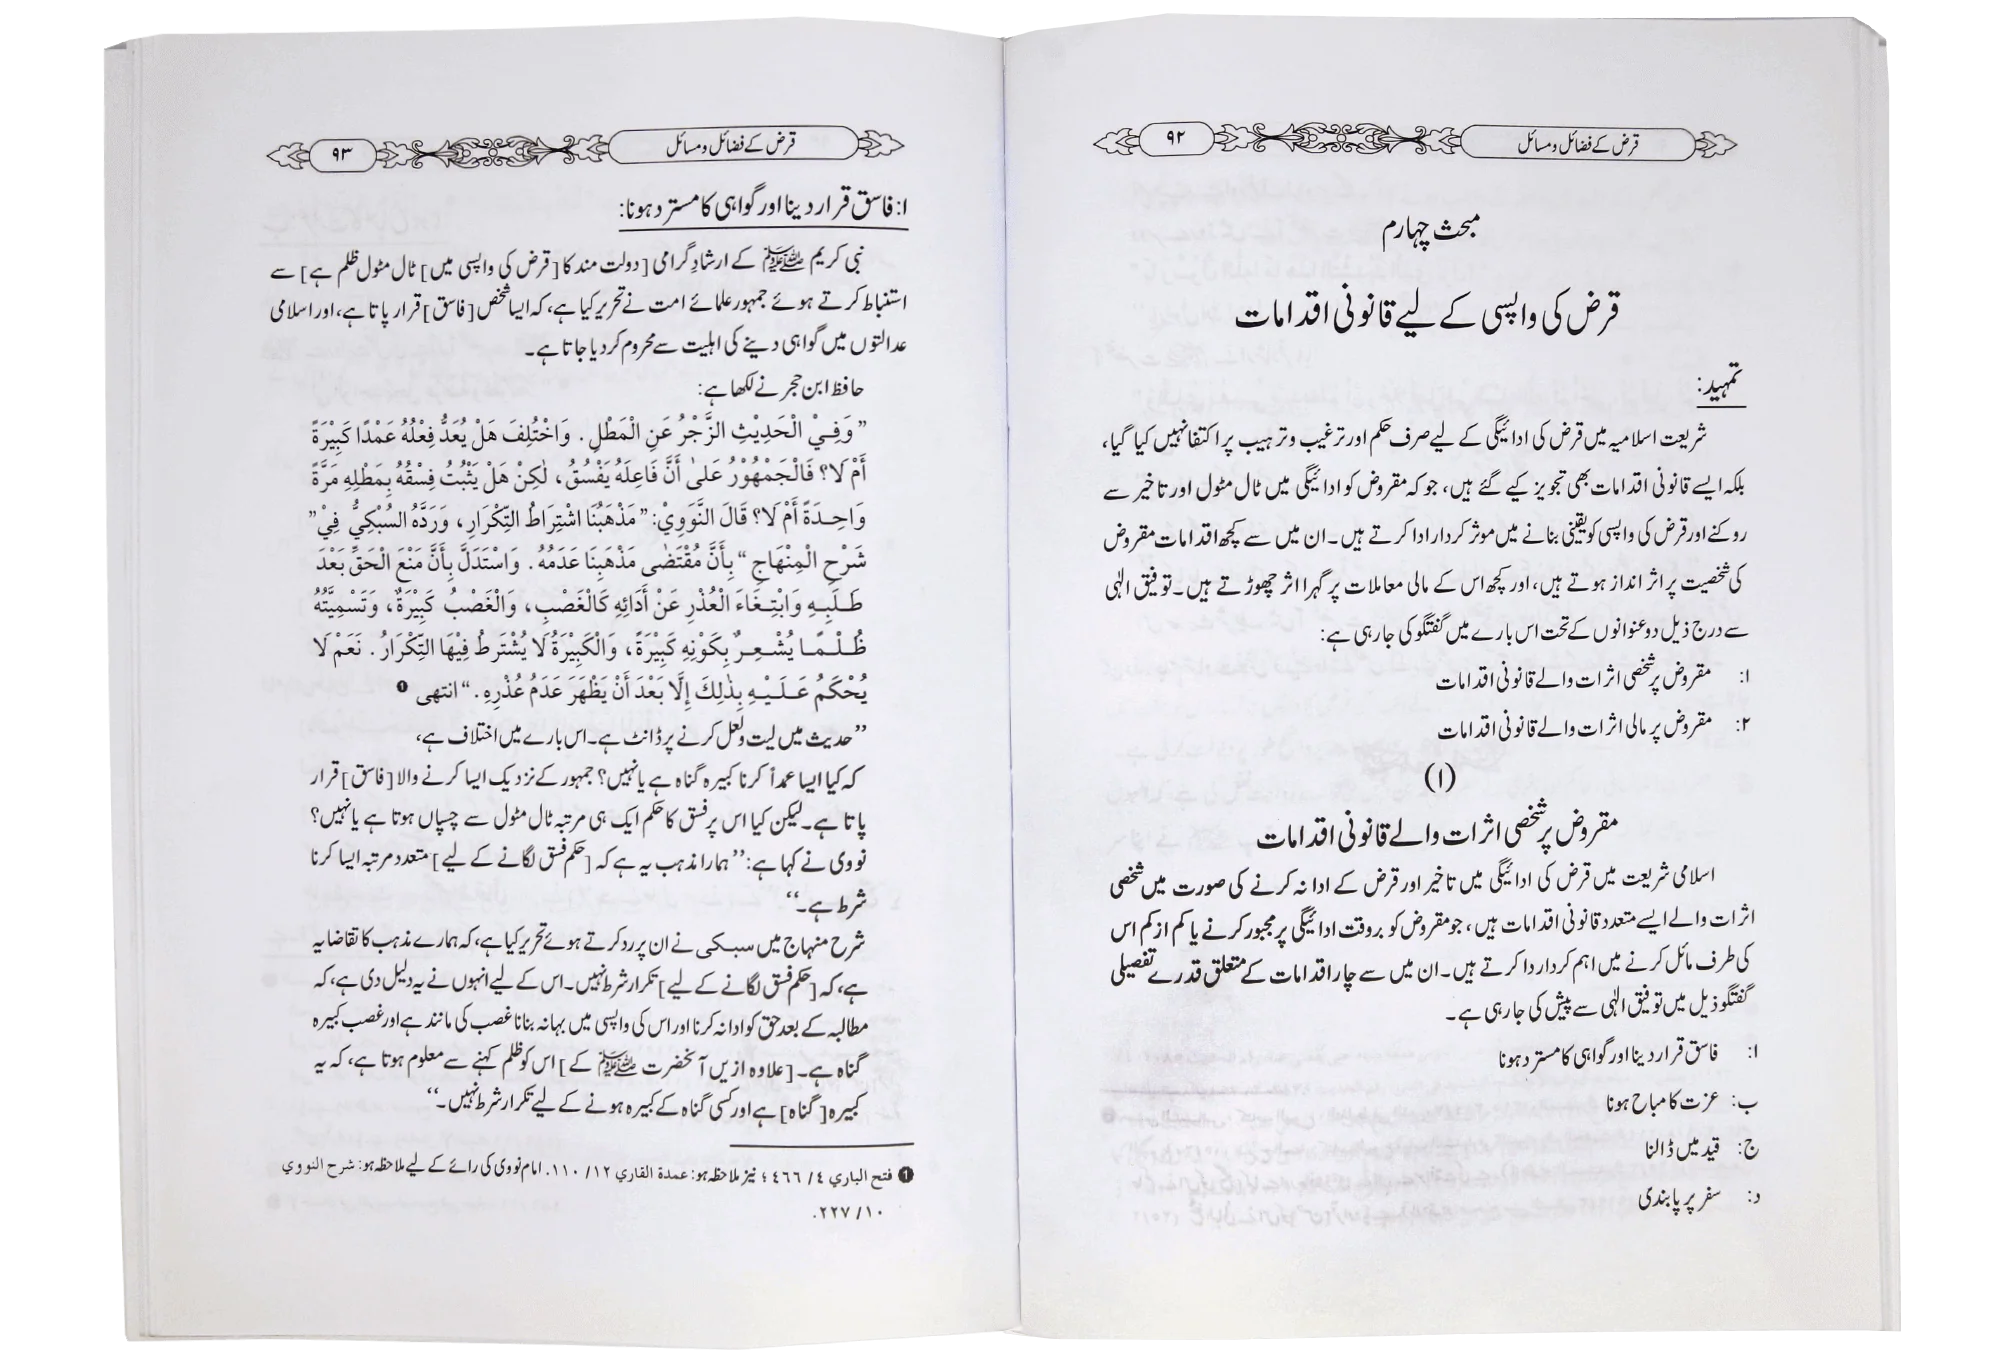 قرض کے فضائل و مسائل
۹۲
مبحث چہارم
قرض کی واپسی کے لیے قانونی اقدامات
تمہید:
شریعت اسلامیہ میں قرض کی ادائیگی کے لیے صرف حکم اور ترغیب و ترہیب پر اکتفا نہیں کیا گیا،
بلکہ ایسے قانونی اقدامات بھی تجویز کیے گئے ہیں، جو کہ مقروض کو ادائیگی میں ٹال مٹول اور تاخیر سے
روکنے اور قرض کی واپسی کو یقینی بنانے میں موثر کردار ادا کرتے ہیں۔ ان میں سے کچھ اقدامات مقروض
کی شخصیت پر اثر انداز ہوتے ہیں، اور کچھ اس کے مالی معاملات پر گہرا اثر چھوڑتے ہیں۔ توفیق الٰہی
سے درج ذیل دو عنوانوں کے تحت اس بارے میں گفتگو کی جارہی ہے:
۱: مقروض پر شخصی اثرات والے قانونی اقدامات
۲: مقروض پر مالی اثرات والے قانونی اقدامات
(۱)
مقروض پر شخصی اثرات والے قانونی اقدامات
اسلامی شریعت میں قرض کی ادائیگی میں تاخیر اور قرض کے ادا نہ کرنے کی صورت میں شخصی
اثرات والے ایسے متعدد قانونی اقدامات ہیں، جو مقروض کو بروقت ادائیگی پر مجبور کرنے یا کم از کم اس
کی طرف مائل کرنے میں اہم کردار دا کرتے ہیں۔ ان میں سے چار اقدامات کے متعلق قدرے تفصیلی
گفتگو ذیل میں توفیق الٰہی سے پیش کی جارہی ہے۔
ا: فاسق قرار دینا اور گواہی کا مسترد ہونا
ب: عزت کا مباح ہونا
ج: قید میں ڈالنا
د: سفر پر پابندی
قرض کے فضائل و مسائل
۹۳
ا: فاسق قرار دینا اور گواہی کا مسترد ہونا:
نبی کریم ﷺ کے ارشادِ گرامی [دولت مند کا [قرض کی واپسی میں] ٹال مٹول ظلم ہے] سے
استنباط کرتے ہوئے جمہور علمائے امت نے تحریر کیا ہے، کہ ایسا شخص [فاسق] قرار پاتا ہے، اور اسلامی
عدالتوں میں گواہی دینے کی اہلیت سے محروم کر دیا جاتا ہے۔
حافظ ابن حجر نے لکھا ہے:
”وَفِيْ الْحَدِيْثِ الزَّجْرُ عَنِ الْمَطْلِ. وَاخْتُلِفَ هَلْ يُعَدُّ فِعْلُهُ عَمْدًا كَبِيْرَةً
أَمْ لَا؟ فَالْجَمْهُوْرُ عَلىٰ أَنَّ فَاعِلَهُ يَفْسُقُ، لٰكِنْ هَلْ يَثْبُتُ فِسْقُهُ بِمَطْلِهِ مَرَّةً
وَاحِدَةً أَمْ لَا؟ قَالَ النَّوَوِيْ: ”مَذْهَبُنَا اشْتِرَاطُ التِّكْرَارِ، وَرَدَّهُ السُّبْكِيُّ فِيْ”
شَرْحِ الْمِنْهَاجِ“ بِأَنَّ مُقْتَضٰى مَذْهَبِنَا عَدَمُهُ. وَاسْتَدَلَّ بِأَنَّ مَنْعَ الْحَقِّ بَعْدَ
طَلَبِهِ وَابْتِغَاءَ الْعُذْرِ عَنْ أَدَائِهِ كَالْغَصْبِ، وَالْغَصْبُ كَبِيْرَةٌ، وَتَسْمِيَّتُهُ
ظُلْمًا يُشْعِرٌ بِكَوْنِهِ كَبِيْرَةً، وَالْكَبِيْرَةُ لَا يُشْتَرطُ فِيْهَا التِّكْرَارُ. نَعَمْ لَا
يُحْكَمُ عَلَيْهِ بِذٰلِكَ إِلَّا بَعْدَ أَنْ يَظْهَرَ عَدَمُ عُذْرِهِ.“ انتهى ❶
’’حدیث میں لیت و لعل کرنے پر ڈانٹ ہے۔ اس بارے میں اختلاف ہے،
کہ کیا ایسا عمداً کرنا کبیرہ گناہ ہے یا نہیں؟ جمہور کے نزدیک ایسا کرنے والا [فاسق] قرار
پاتا ہے۔ لیکن کیا اس پر فسق کا حکم ایک ہی مرتبہ ٹال مٹول سے چسپاں ہوتا ہے یا نہیں؟
نووی نے کہا ہے: ’’ہمارا مذہب یہ ہے کہ [حکم فسق لگانے کے لیے] متعدد مرتبہ ایسا کرنا
شرط ہے۔‘‘
شرح منہاج میں سبکی نے ان پر رد کرتے ہوئے تحریر کیا ہے، کہ ہمارے مذہب کا تقاضا یہ
ہے، کہ [حکم فسق لگانے کے لیے] تکرار شرط نہیں۔ اس کے لیے انہوں نے یہ دلیل دی ہے، کہ
مطالبہ کے بعد حق کو ادا نہ کرنا اور اس کی واپسی میں بہانہ بنانا غصب کی مانند ہے اور غصب کبیرہ
گناہ ہے۔ [علاوہ ازیں آنحضرت ﷺ کے] اس کو ظلم کہنے سے معلوم ہوتا ہے، کہ یہ
کبیرہ [گناہ] ہے اور کسی گناہ کے کبیرہ ہونے کے لیے تکرار شرط نہیں۔‘‘
❶ فتح الباري ٤/ ٤٦٦؛ نیز ملاحظہ ہو: عمدة القاري ١٢/ ١١٠. امام نووی کی رائے کے لیے ملاحظہ ہو: شرح النووي
١٠/ ٢٢٧.